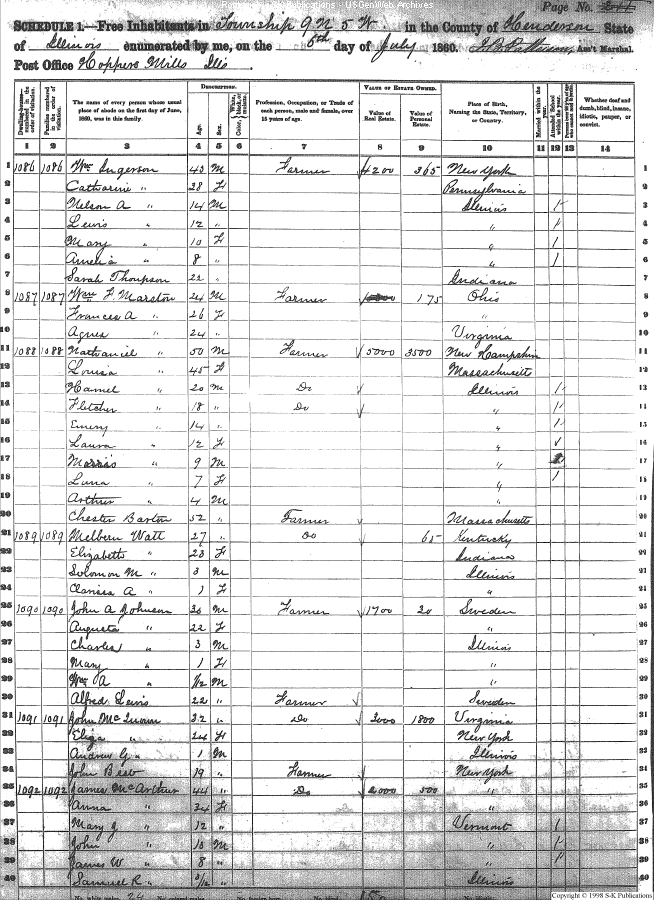 USGenWeb Archives
Page No.
SCHEDULE 1.—Free Inhabitants in Township 9 N 5 W in the County of Henderson State
of Illinois enumerated by me, on the 6th day of July 1860. Ass't Marshal.
Post Office Hoppers Mills Ills
Dwelling-houses— numbered in the order of visitation.
Families numbered in the order of visitation.
The name of every person whose usual place of abode on the first day of June, 1860, was in this family.
DESCRIPTION.
Age.
Sex.
Color, White, black, or mulatto.
Profession, Occupation, or Trade of each person, male and female, over 15 years of age.
VALUE OF ESTATE OWNED.
Value of Real Estate.
Value of Personal Estate.
Place of Birth, Naming the State, Territory, or Country.
Married within the year.
Attended School within the year.
Whether deaf and dumb, blind, insane, idiotic, pauper, or convict.
1 2 3 4 5 6 7 8 9 10 11 12 13 14
1 1086 1086 Wm Ingerson 43 M Farmer 4200 365 New York 1
2 Catharine " 28 F Pennsylvania 2
3 Nelson A " 14 M Illinois 1 3
4 Lewis " 12 " " 1 4
5 Mary " 10 F " 1 5
6 Amelia " 8 " " 1 6
7 Sarah Thompson 22 " Indiana 7
8 1087 1087 Wm F Marston 24 M Farmer 175 Ohio 8
9 Frances A " 26 F " 9
10 Agnes " 24 " Virginia 10
11 1088 1088 Nathaniel " 50 M Farmer 5000 3500 New Hampshire 11
12 Louisa " 45 F Massachusetts 12
13 Hamel " 20 M Do Illinois 1 13
14 Fletcher " 18 " Do " 1 14
15 Emery " 14 " " 1 15
16 Laura " 12 F " 1 16
17 Morris " 9 M " 1 17
18 Luna " 7 F " 1 18
19 Arthur " 4 M " 19
20 Chester Barton 52 " Farmer Massachusetts 20
21 1089 1089 Melbern Watt 27 " Do 65 Kentucky 21
22 Elizabeth " 23 F Indiana 22
23 Solomon M " 3 M Illinois 23
24 Clarissa A " 1 F " 24
25 1090 1090 John A Johnson 30 M Farmer 1700 20 Sweden 25
26 Augusta " 22 F " 26
27 Charles " 3 M Illinois 27
28 Mary " 1 F " 28
29 Wm A " 1/12 M " 29
30 Alfred Lewis 22 " Farmer Sweden 30
31 1091 1091 John 32 " Do 3000 1800 Virginia 31
32 Eliza " 24 F New York 32
33 Andrew G " 1 M Illinois 33
34 John 19 " Farmer New York 34
35 1092 1092 James McArthur 44 " Do 2000 500 " 35
36 Anna " 34 F " 36
37 Mary J " 12 " Vermont 1 37
38 John " 10 M " 1 38
39 James W " 8 " " 1 39
40 Samuel R " 3/12 " Illinois 40
Copyright © 1998 S-K Publications